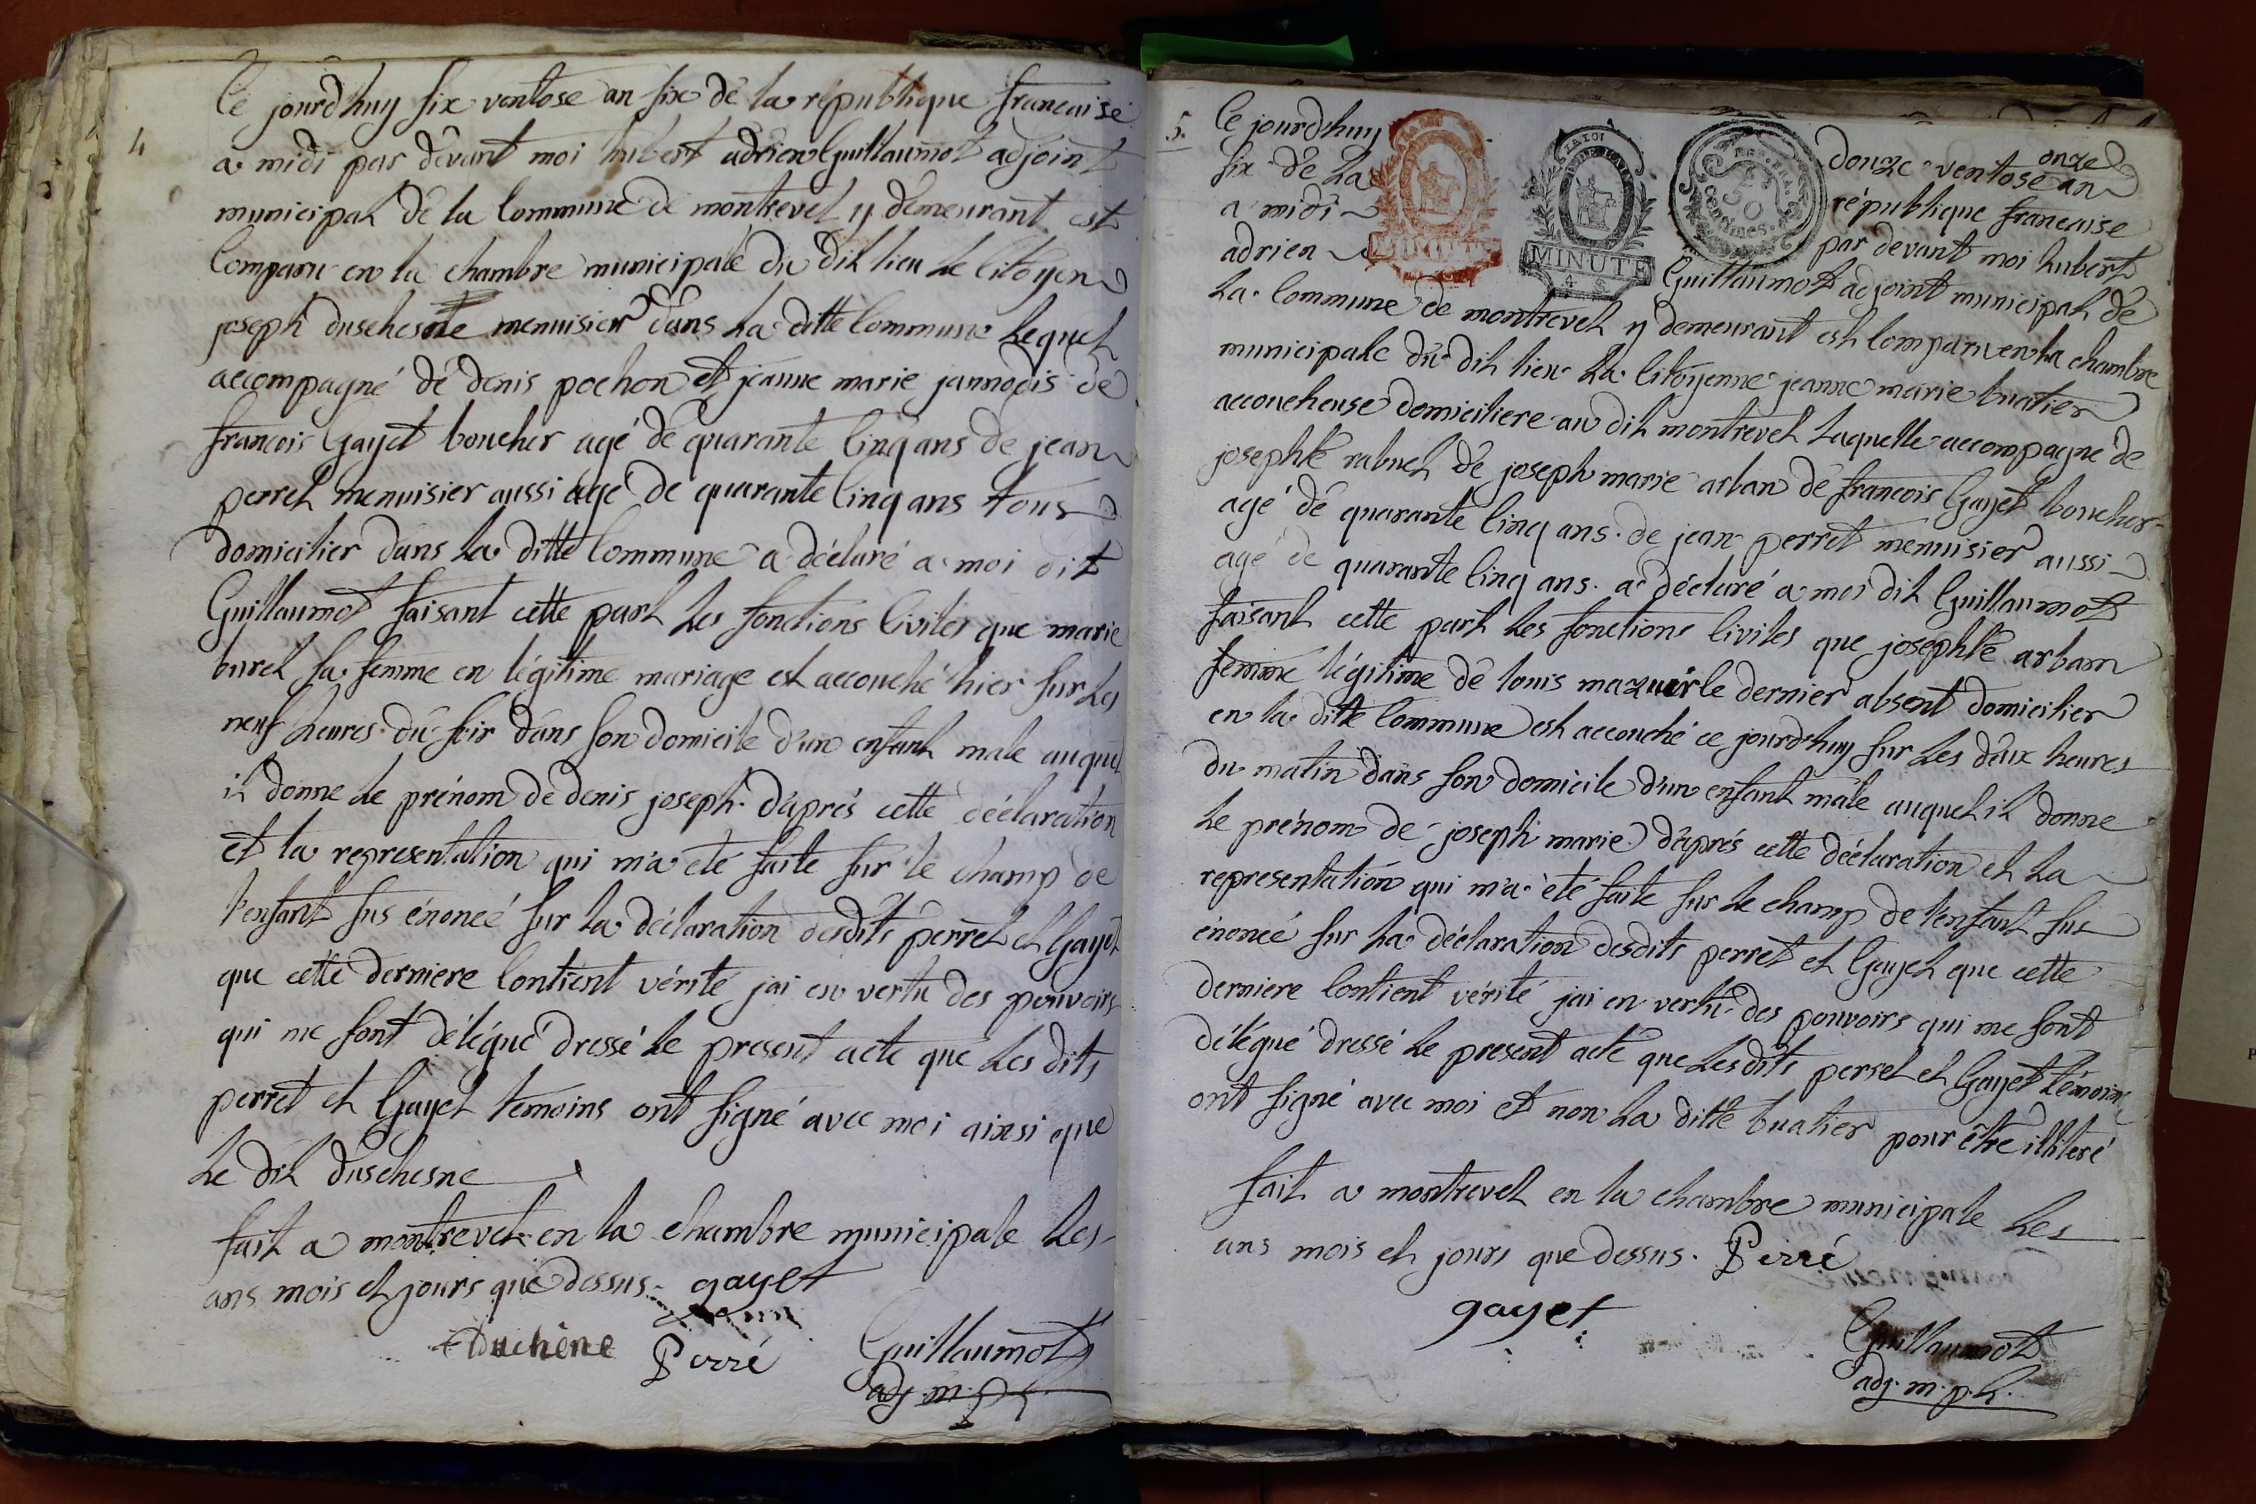 4
Ce jourdhuy six ventose an six de la république francaise
a midi par devant moi hubert adrien Guillaumot adjoint
municipal de la Commune de montrevel y demeurant est
Comparu en la chambre municipale du dit lieu le Citoyen
joseph duschesne menuisier dans la ditte Commune lequel
accompagné de denis pochon et jeanne marie jannodis de
francois Gayet boucher agé de quarante Cinq ans de jean
perret menuisier aussi agé de quarante Cinq ans tous
domicilier dans la ditte Commune a déclaré a moi dit
Guillaumot faisant cette part les fonctions Civiles que marie
buret sa femme en légitime mariage est accouché hier sur les
neuf heures du soir dans son domicile d'un enfant male auquel
il donne le prénom de denis joseph d'aprés cette déclaration
et la representation qui m'a été faite sur le champ de
l'enfant sus énoncé sur la déclaration desdits perret et Gayet
que cette derniere Contient vérité jai en vertu des pouvoirs
qui me sont délégué dressé le present acte que les dits
perret et Gayet temoins ont signé avec moi ainsi que
le dit duschesne
fait a montrevel en la chambre municipale les
ans mois et jours que dessus. gayet
Duchêne Perré Guillaumot
adj. m. pl.
5.
Ce jourdhuy donze onze ventose an
six de la république francaise
a midi par devant moi hubert
adrien Guillaumot adjoint municipal de
MINUTE
MINUTE
50
Centimes.
la Commune de montrevel y demeurant est Comparu en la chambre
municipale du dit lieu la Citoyenne jeanne marie buatier
accoucheuse domiciliere au dit montrevel laquelle accompagné de
josephte rabuel de joseph marie arban de francois Gayet boucher
agé de quarante Cinq ans. de jean perret menuisier aussi
agé de quarante Cinq ans. a déclaré a moi dit Guillaumot
faisant cette part les fonctions Civiles que josephte arban
femme légitime de louis mazuir le dernier absent domicilier
en la ditte Commune est accouché ce jourdhuy sur les deux heures
du matin dans son domicile d'un enfant mâle auquel il donne
le prénom de joseph marie d'aprés cette déclaration et la
representation qui m'a été faite sur le champ de l'enfant sus
énoncé sur la déclaration desdits perret et Gayet que cette
derniere Contient vérité jai en vertu des pouvoirs qui me sont
délégué dressé le present acte que lesdits perret et Gayet témoins
ont signé avec moi et non la ditte buatier pour être illiteré
fait a montrevel en la chambre municipale les
ans mois et jours que dessus. Perré
gayet
Guillaumot
adj. m. p. l.